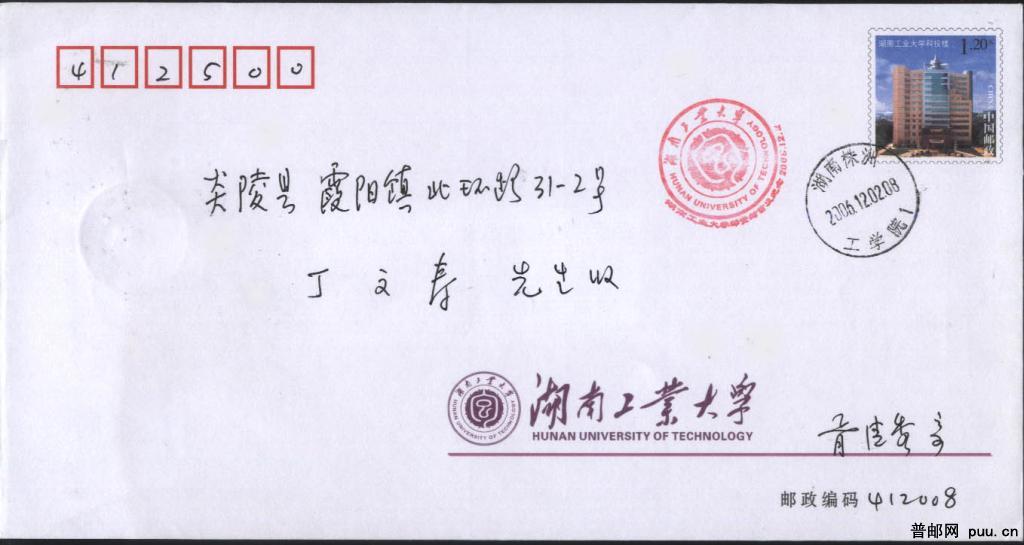 412500
湖南工业大学科技楼
1.20元
CHINA
中国邮政
湖南工业大学
HUNAN UNIVERSITY OF TECHNOLOGY
湖南株洲
2006.12.02.08
工学院1
炎陵县 霞阳镇 北环路31-2号
丁文寿 先生收
湖南工业大学
HUNAN UNIVERSITY OF TECHNOLOGY
湖南工业大学
HUNAN UNIVERSITY OF TECHNOLOGY
邮政编码 412008
普邮网 puu.cn